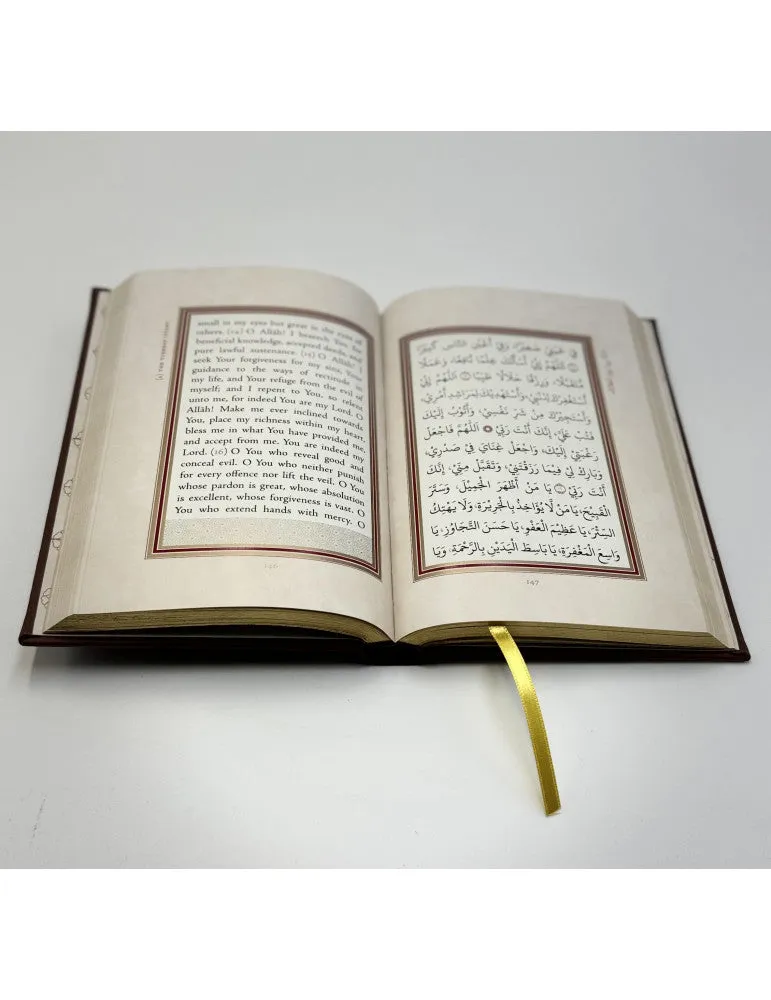 small in my eyes but great in the eyes of
others. (14) O Allāh! I beseech You for
beneficial knowledge, accepted deeds and
pure lawful sustenance. (15) O Allāh! I
seek Your forgiveness for my sins, Your
guidance to the ways of rectitude in
my life, and Your refuge from the evil of
myself; and I repent to You, so relent
unto me, for indeed You are my Lord. O
Allāh! Make me ever inclined towards
You, place my richness within my heart,
bless me in what You have provided me,
and accept from me. You are indeed my
Lord. (16) O You who reveal good and
conceal evil. O You who neither punish
for every offence nor lift the veil. O You
whose pardon is great, whose absolution
is excellent, whose forgiveness is vast. O
You who extend hands with mercy. O
146
فِي عَيْنِي صَغِيرًا، وَفِي أَعْيُنِ النَّاسِ كَبِيرًا
اللَّهُمَّ إِنِّي أَسْأَلُكَ عِلْمًا نَافِعًا، وَعَمَلًا
مُتَقَبَّلًا، وَرِزْقًا حَلَالًا طَيِّبًا اللَّهُمَّ إِنِّي
أَسْتَغْفِرُكَ لِذَنْبِي، وَأَسْتَهْدِيكَ لِمَرَاشِدِ أَمْرِي،
وَأَسْتَجِيرُكَ مِنْ شَرِّ نَفْسِي، وَأَتُوبُ إِلَيْكَ
فَتُبْ عَلَيَّ، إِنَّكَ أَنْتَ رَبِّي اللَّهُمَّ فَاجْعَلْ
رَغْبَتِي إِلَيْكَ، وَاجْعَلْ غِنَايَ فِي صَدْرِي،
وَبَارِكْ لِي فِيمَا رَزَقْتَنِي، وَتَقَبَّلْ مِنِّي، إِنَّكَ
أَنْتَ رَبِّي يَا مَنْ أَظْهَرَ الْجَمِيلَ، وَسَتَرَ
الْقَبِيحَ، يَا مَنْ لَا يُؤَاخِذُ بِالْجَرِيرَةِ، وَلَا يَهْتِكُ
السِّتْرَ، يَا عَظِيمَ الْعَفْوِ، يَا حَسَنَ التَّجَاوُزِ، يَا
وَاسِعَ الْمَغْفِرَةِ، يَا بَاسِطَ الْيَدَيْنِ بِالرَّحْمَةِ، وَيَا
147